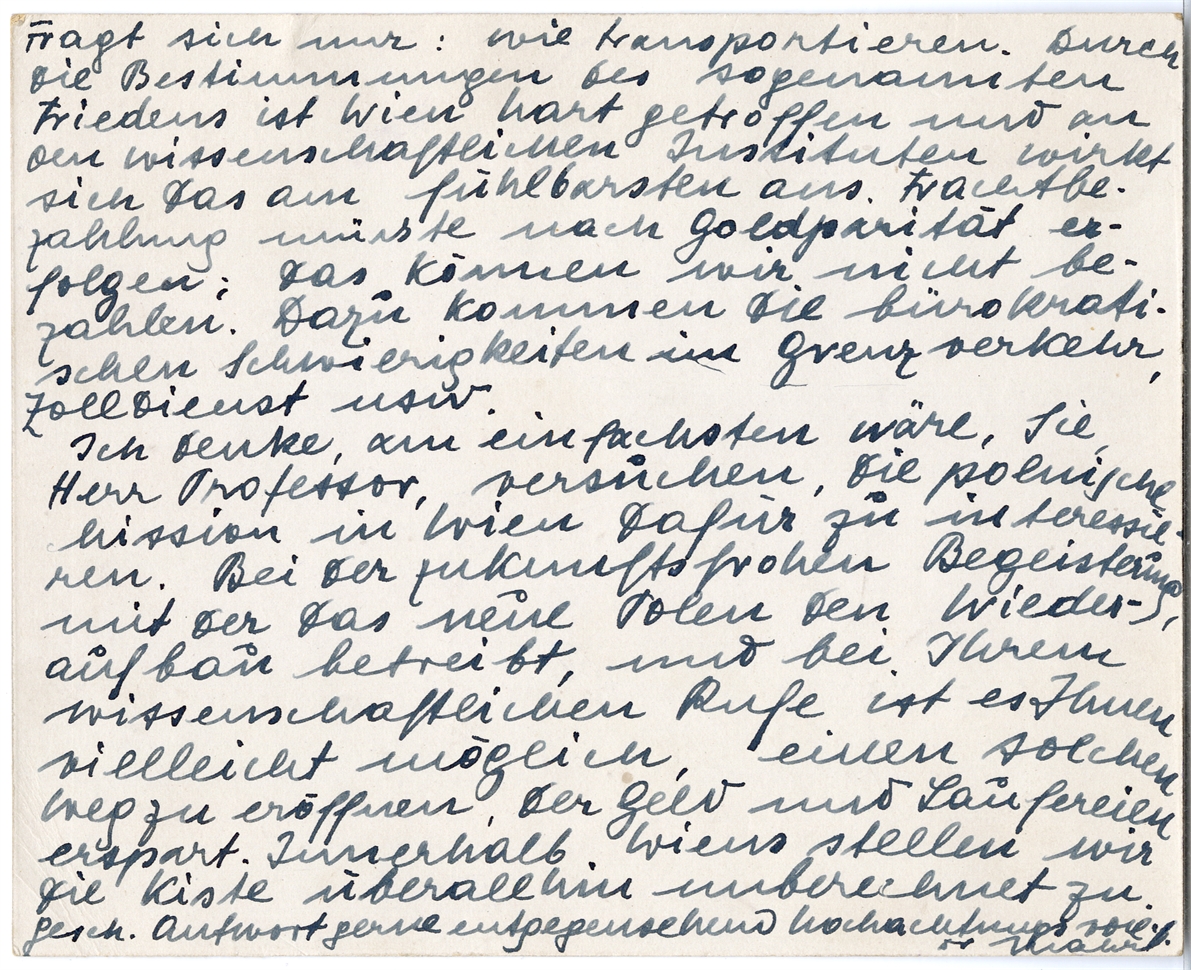 Fragt sich nur: wie transportieren. Durch
die Bestimmungen des sogenannten
Friedens ist Wien hart getroffen und an
den wissenschaftlichen Instituten wirkt
sich das am fühlbarsten aus. Frachtbe-
zahlung müsste nach Goldparität er-
folgen; das können wir nicht be-
zahlen. Dazu kommen die bürokrati-
schen Schwierigkeiten im Grenzverkehr,
Zolldienst usw.
Ich denke, am einfachsten wäre, Sie,
Herr Professor, versuchen, die polnische
Mission in Wien dafür zu interessie-
ren. Bei der zukunftsfrohen Begeisterung,
mit der das neue Polen den Wieder-
aufbau betreibt, und bei Ihrem
wissenschaftlichen Rufe ist es Ihnen
vielleicht möglich, einen solchen
Weg zu eröffnen, der Geld und Laufereien
erspart. Innerhalb Wiens stellen wir
die Kiste überallhin unberechnet zu.
Gesch. Antwort gerne entgegensehend hochachtungsvoll
Dr